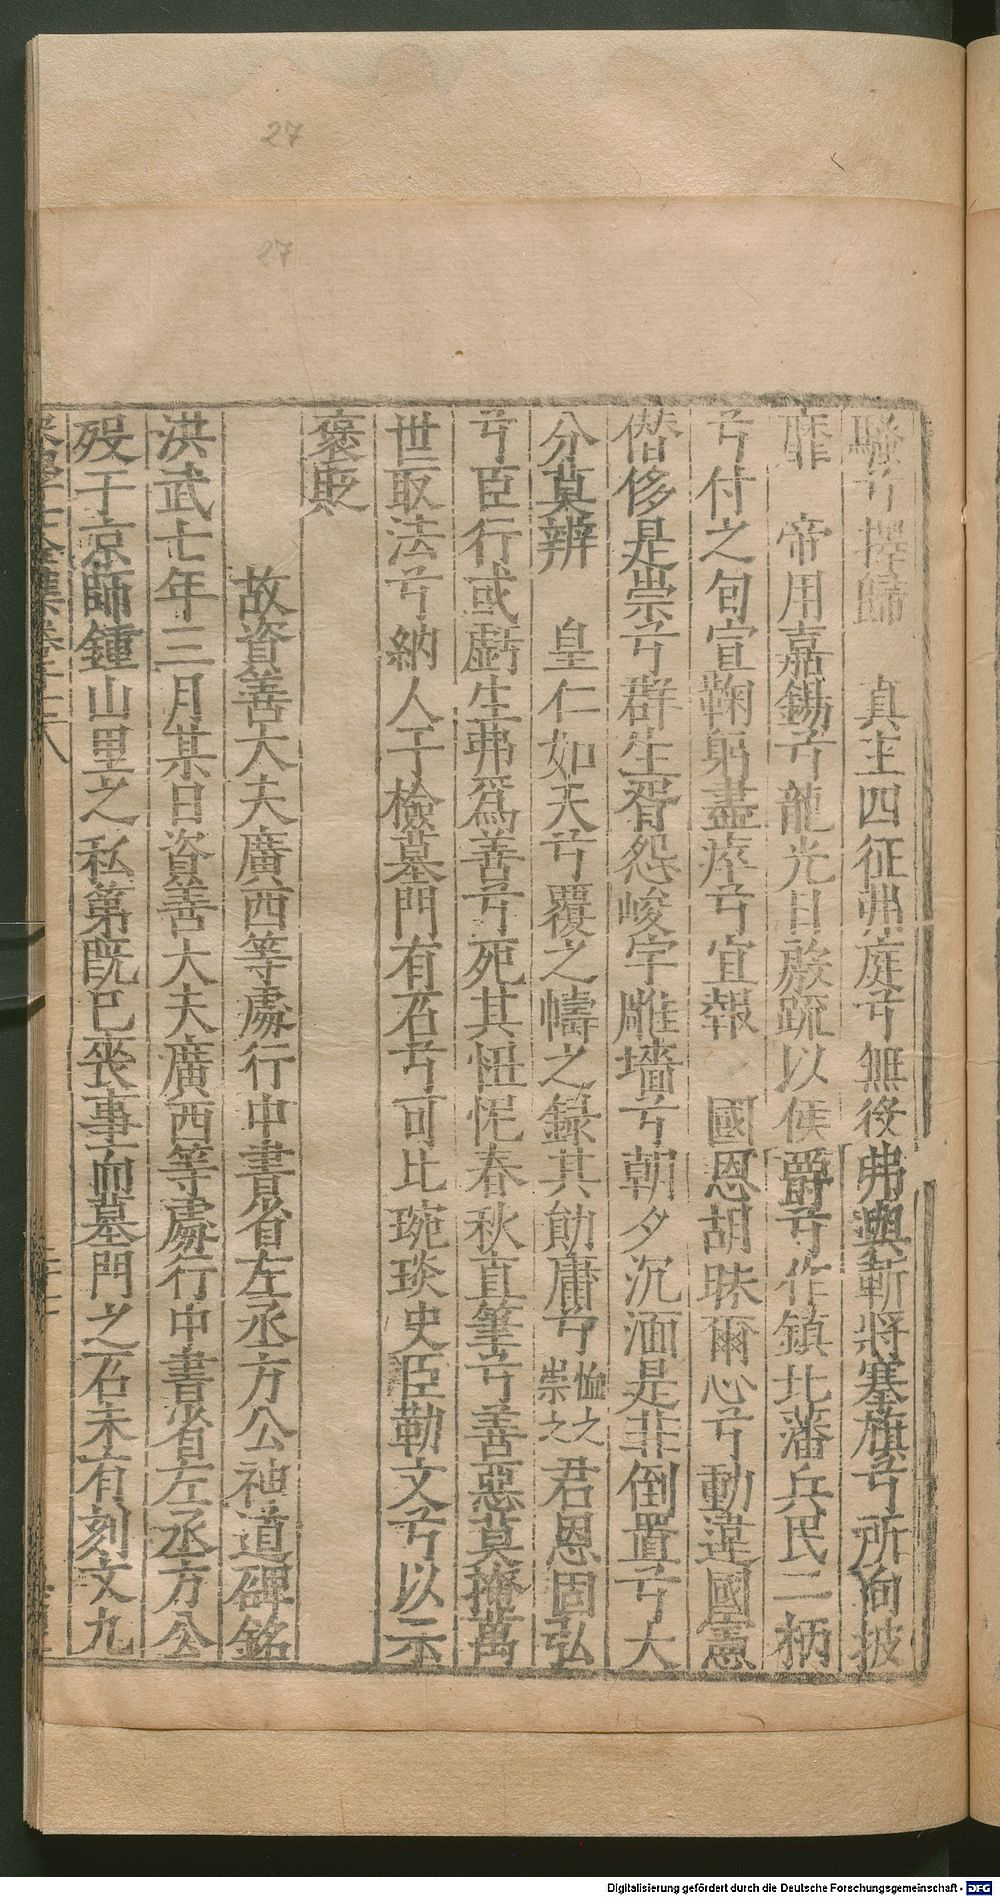 27
27
驂兮擇歸　真主四征州庭兮無役弗輿斬將搴旗兮所向披
靡　帝用嘉錫兮龍光日殷疏以侯爵兮作鎮北藩兵民二柄
兮付之旬宣鞠躬盡瘁兮宜報　國恩胡昧爾心兮動違國憲
僭侈是崇兮群生胥怨峻宇雕墻兮朝夕沉湎是非倒置兮大
分莫辨　皇仁如天兮覆之幬之錄其勛庸兮恤之崇之君恩固弘
兮臣行或虧生弗爲善兮死其忸怩春秋直筆兮善惡莫掩萬
世取法兮納人于檢墓門有石兮可比琬琰史臣勒文兮以示
褒貶
故資善大夫廣西等處行中書省左丞方公神道碑銘
洪武七年三月某日資善大夫廣西等處行中書省左丞方公
歿于京師鍾山里之私第既已喪事而墓門之石未有刻文九
Digitalisierung gefördert durch die Deutsche Forschungsgemeinschaft - DFG